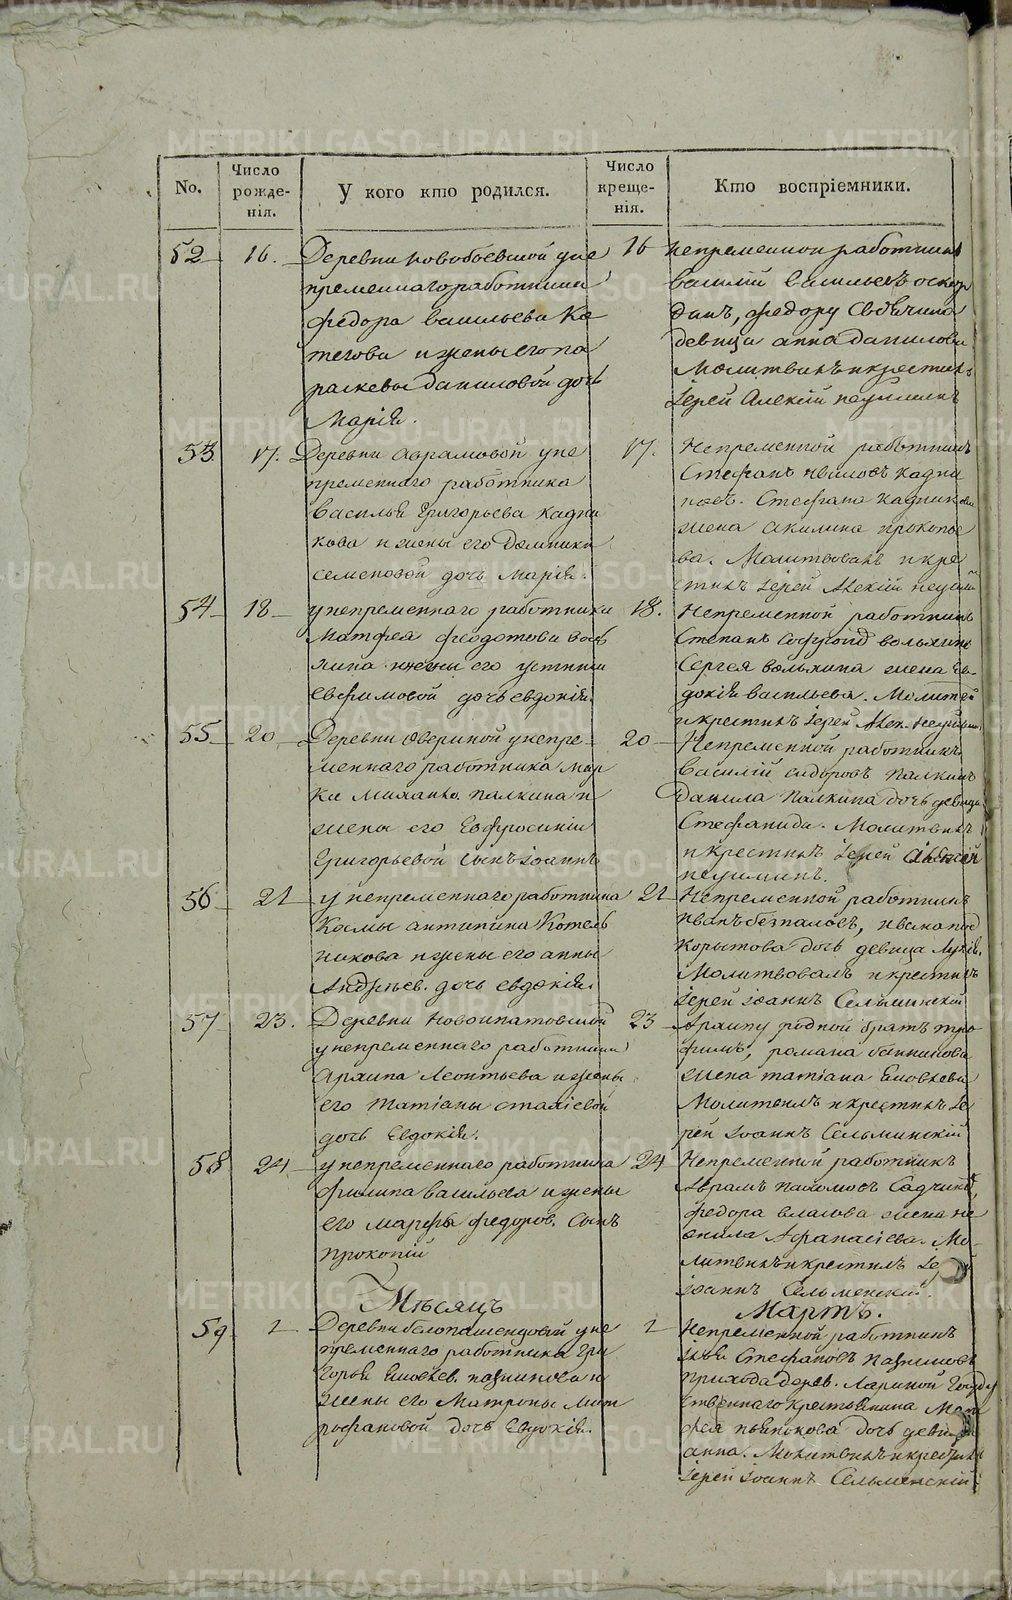 No.
Число рожденія.
У кого кто родился.
Число крещенія.
Кто воспріемники.
52 16. Деревни новобоевской у не
пременнаго работника
федора васильева Ка
тегова и жены его па
раскевы даниловой дочь
Марія.
16 непременной работникъ
василій васильевъ
федору
девица анна данилова
Молитвилъ и крестилъ
Іерей Алексій неуиминъ
53 17. Деревни аврамовой у не
пременнаго работника
Василья Григорьева кадни
кова и жены его Домники
семеновой дочь Марія.
17. Непременной работникъ
Стефанъ кадни
ковъ. Стефана кадникова
жена акилина прокопье
ва. Молитвовалъ и кре
стилъ Іерей Алексій неуим
54 18 у непременнаго работника
Матфея федотова
и жены его устиньи
евфимовой дочь евдокія.
18. Непременной работникъ
Степанъ
Сергея жена ев
докія васильева. Молитвил
и крестилъ Іерей Алек. Неуимин.
55 20 Деревни Овериной у непре
меннаго работника мар
ка Михайло. палкина и
жены его Евфросиніи
Григорьевой сынъ Іоаннъ
20 Непременной работникъ
Василій сидоровъ палкинъ
Данила палкина дочь девица
Стефанида. Молитвилъ
и крестилъ Іерей Алексей
неуиминъ.
56 21 у непременнаго работника
Космы антипина Котель
никова и жены его анны
Андреев. дочь евдокія.
21 Непременной работникъ
иванъ безпаловъ, ивана под
корытова дочь девица
Молитвовалъ и крестилъ
Іерей Іоаннъ Сельминскій
57 23. Деревни новоипатовской
у непременнаго работника
Архипа Леонтьева и жены
его татіаны
дочь Евдокія.
23 Архипу родной братъ тро
фимъ, романа банникова
жена татіана
Молитвилъ и крестилъ Іе
рей Іоаннъ Сельминскій
58 24 у непременнаго работника
филипа васильева и жены
его марфы федоров. сынъ
прокопій
24 Непременной работникъ
Аврамъ пахомовъ Садчик
федора власова жена не
онила Афанасіева. Мо
литвилъ и крестилъ Іерей
Іоаннъ Сельменскій.
Месяцъ Мартъ.
59 1 Деревни белопашенцовой у не
пременнаго работника Гри
горья Яковлев. пазникова и
жены его Матроны Мит
рофановой дочь Евдокія.
1 Непременной работникъ
Илья Стефановъ пазниковъ
прихода дерев. Лариной Госуда
ственнаго крестьянина Мат
фея пьянкова дочь девица
анна. Молитвилъ и крестилъ
Іерей Іоаннъ Сельменскій.
METRIKI.GASO-URAL.RU